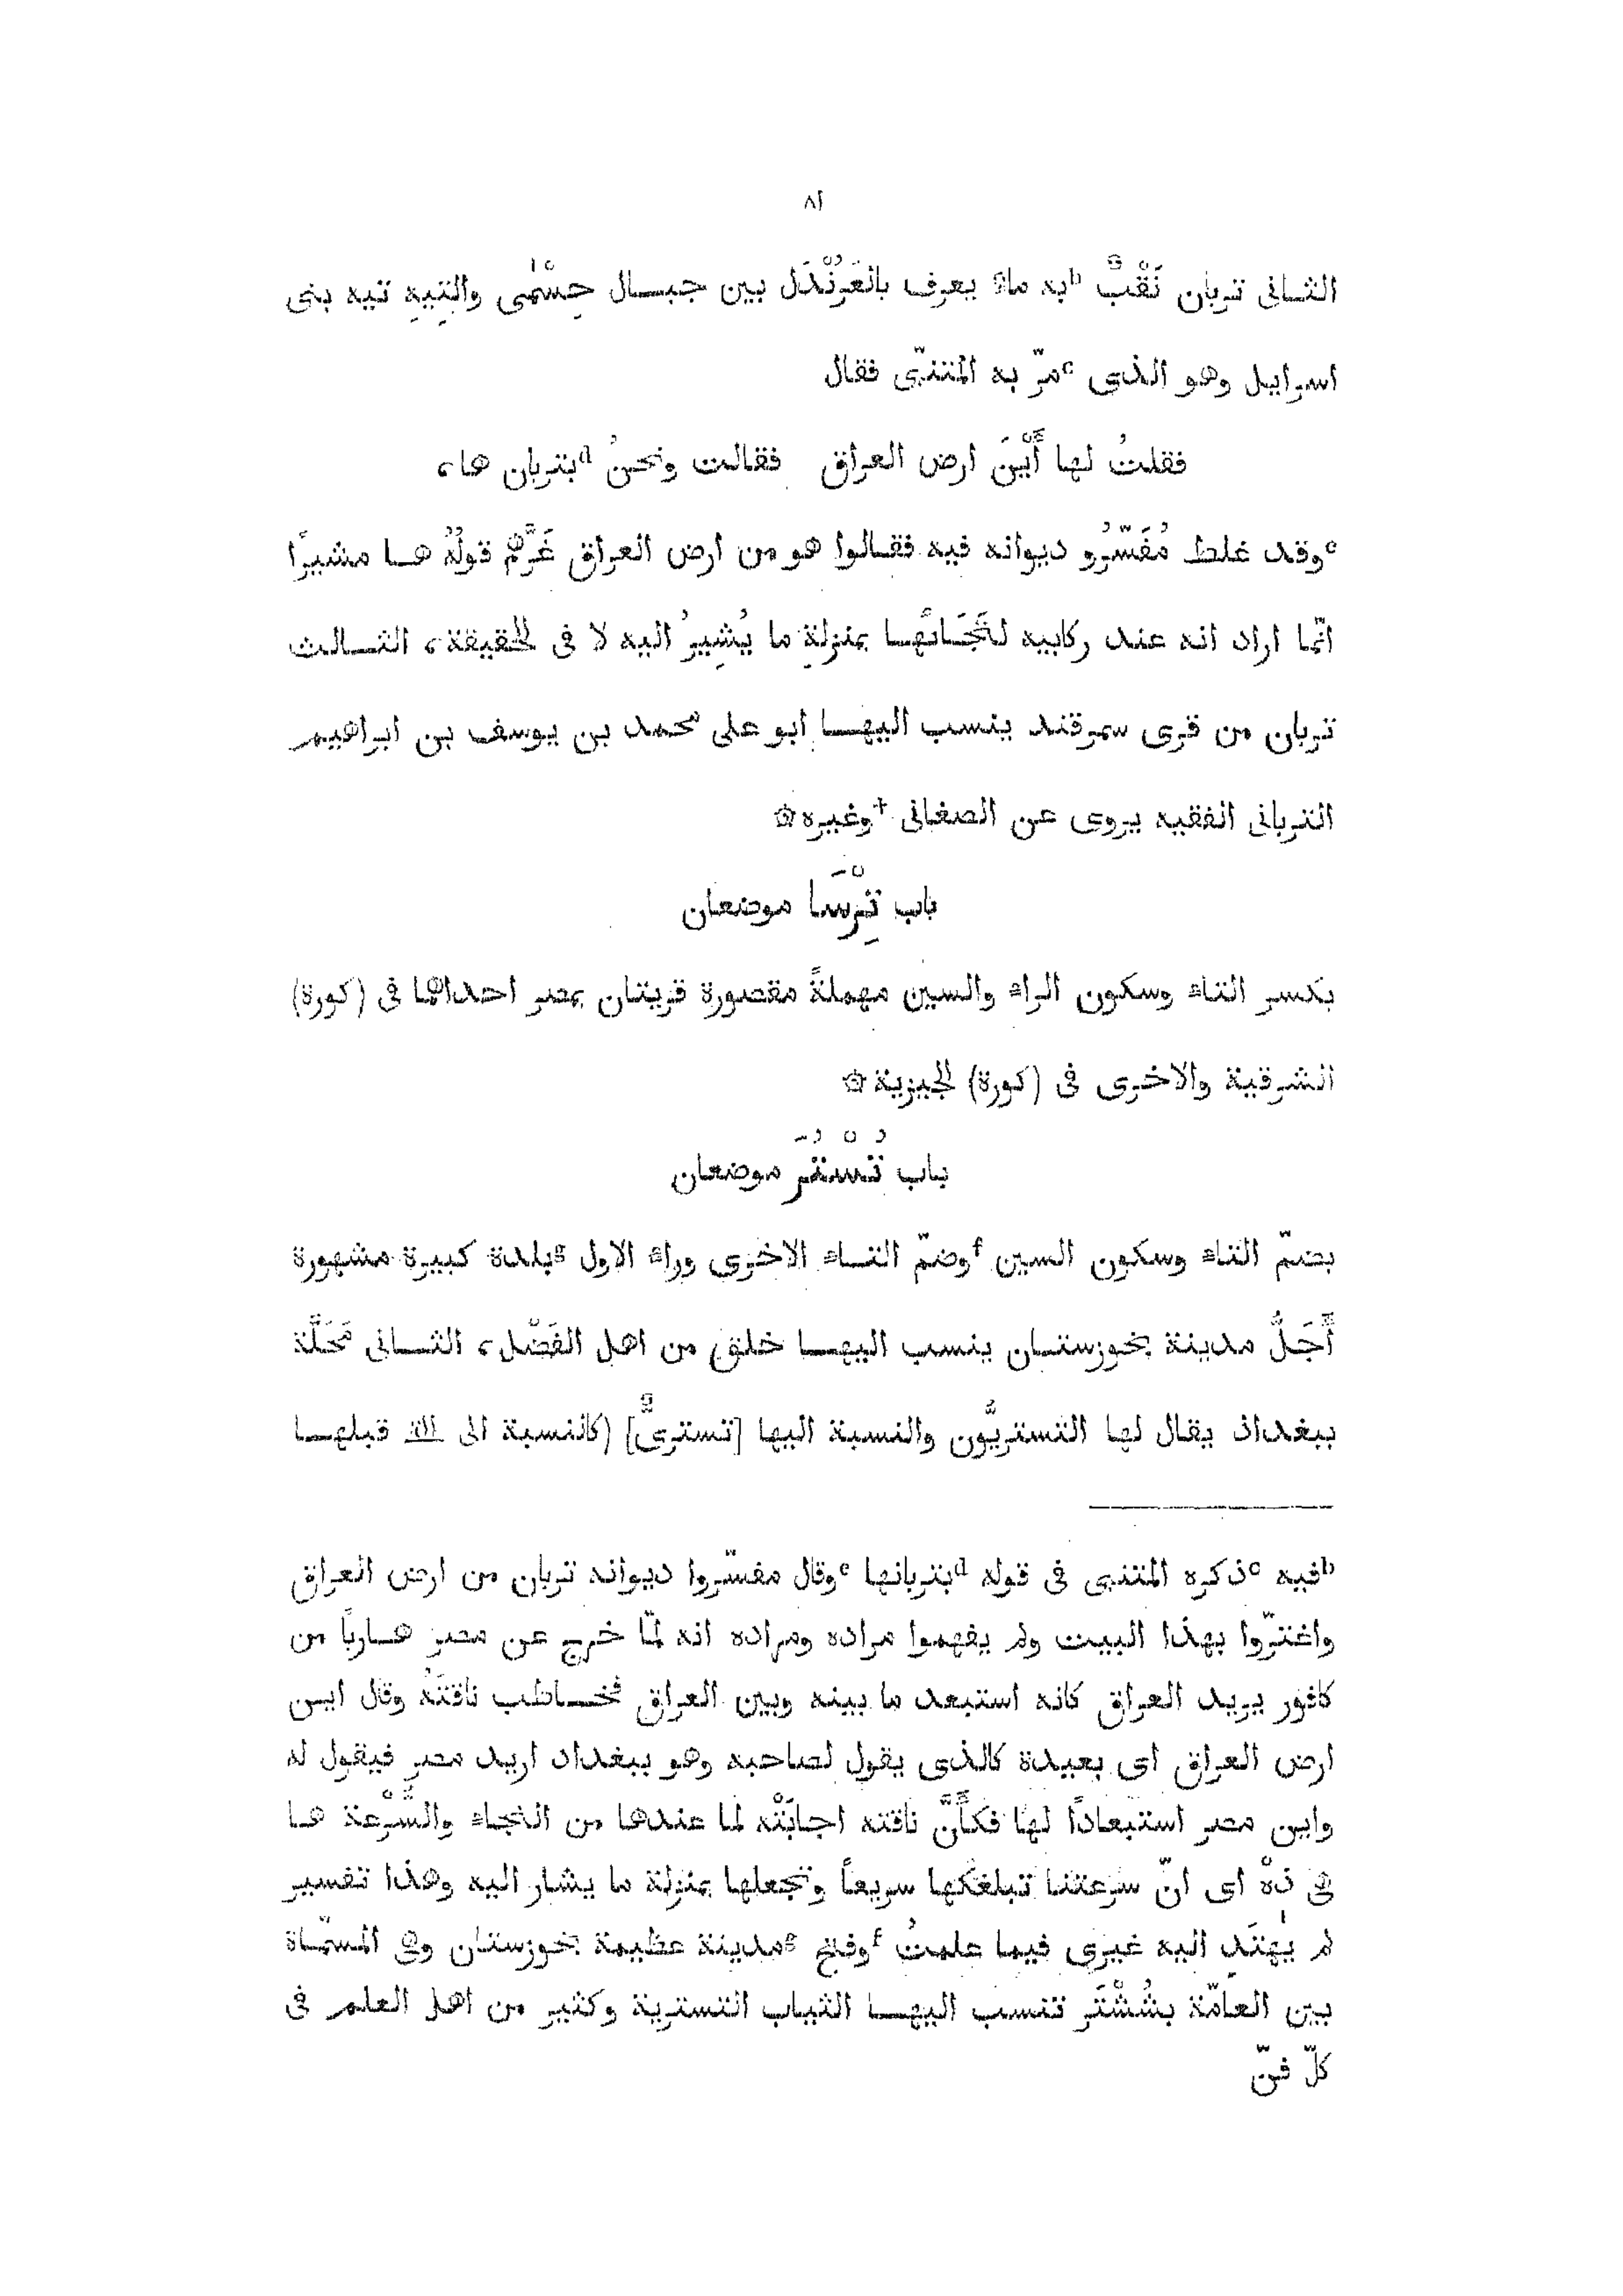 ٨١
الثاني تربان نَقْبٌ bبه ماء يعرف بالغَرُنْدَل بين جبال حِسْمٰى والتِيهِ تيه بنى
اسرايل وهو الذى cمرّ به المتنبّى فقال
فقلتُ لها أَيْنَ ارض العراق فقالت ونحنُ dبتربان ها،
eوقد غلط مُفَسِّرُو ديوانه فيه فقالوا هو من ارض العراق غَرَّهُم قولُهُ ها مشيرًا
انّما اراد انه عند ركابيه لنَجَائِها بمنزلةِ ما يُشِيرُ اليه لا فى الحقيقة، الثالث
تربان من قرى سمرقند ينسب اليها ابو على محمد بن يوسف بن ابراهيم
التربانى الفقيه يروى عن الصغانى †وغيره ۞
باب تِرْسَا موضعان
بكسر التاء وسكون الراء والسين مهملةً مقصورة قريتان بمصر احداهما فى (كورة)
الشرقية والاخرى فى (كورة) الجيزية ۞
باب تُسْتُرَ موضعان
بضمّ التاء وسكون السين fوضمّ التاء الاخرى وراء الاول gبلدة كبيرة مشهورة
أَجَلُّ مدينة بخوزستان ينسب اليها خلق من اهل الفَضْل، الثانى مَحَلَّة
ببغداذ يقال لها التستريُّون والنسبة اليها [تسترىٌّ] (كالنسبة الى الة قبلها
bفيه cذكره المتنبى فى قوله dبتربانها eوقال مفسّروا ديوانه تربان من ارض العراق
واغترّوا بهذا البيت ولم يفهموا مراده ومراده انه لمّا خرج عن مصر هاربًا من
كافور يريد العراق كانه استبعد ما بينه وبين العراق فخاطب ناقتَهُ وقال اين
ارض العراق اى بعيدة كالذى يقول لصاحبه وهو ببغداد اريد مصر فيقول له
واين مصر استبعادًا لها فكأَنَّ ناقته اجابَتْه لما عندها من النجاء والسُّرْعة ها
هى ذهْ اى انّ سرعتنا تبلغكها سريعاً وتجعلها بمنزلة ما يشار اليه وهذا تفسير
لم يهتَدِ اليه غيرى فيما علمتُ fوفتح gمدينة عظيمة بخوزستان وهى المسمّاة
بين العامّة بشُشْتَر تنسب اليها الثياب التسترية وكثير من اهل العلم فى
كلّ فنّ